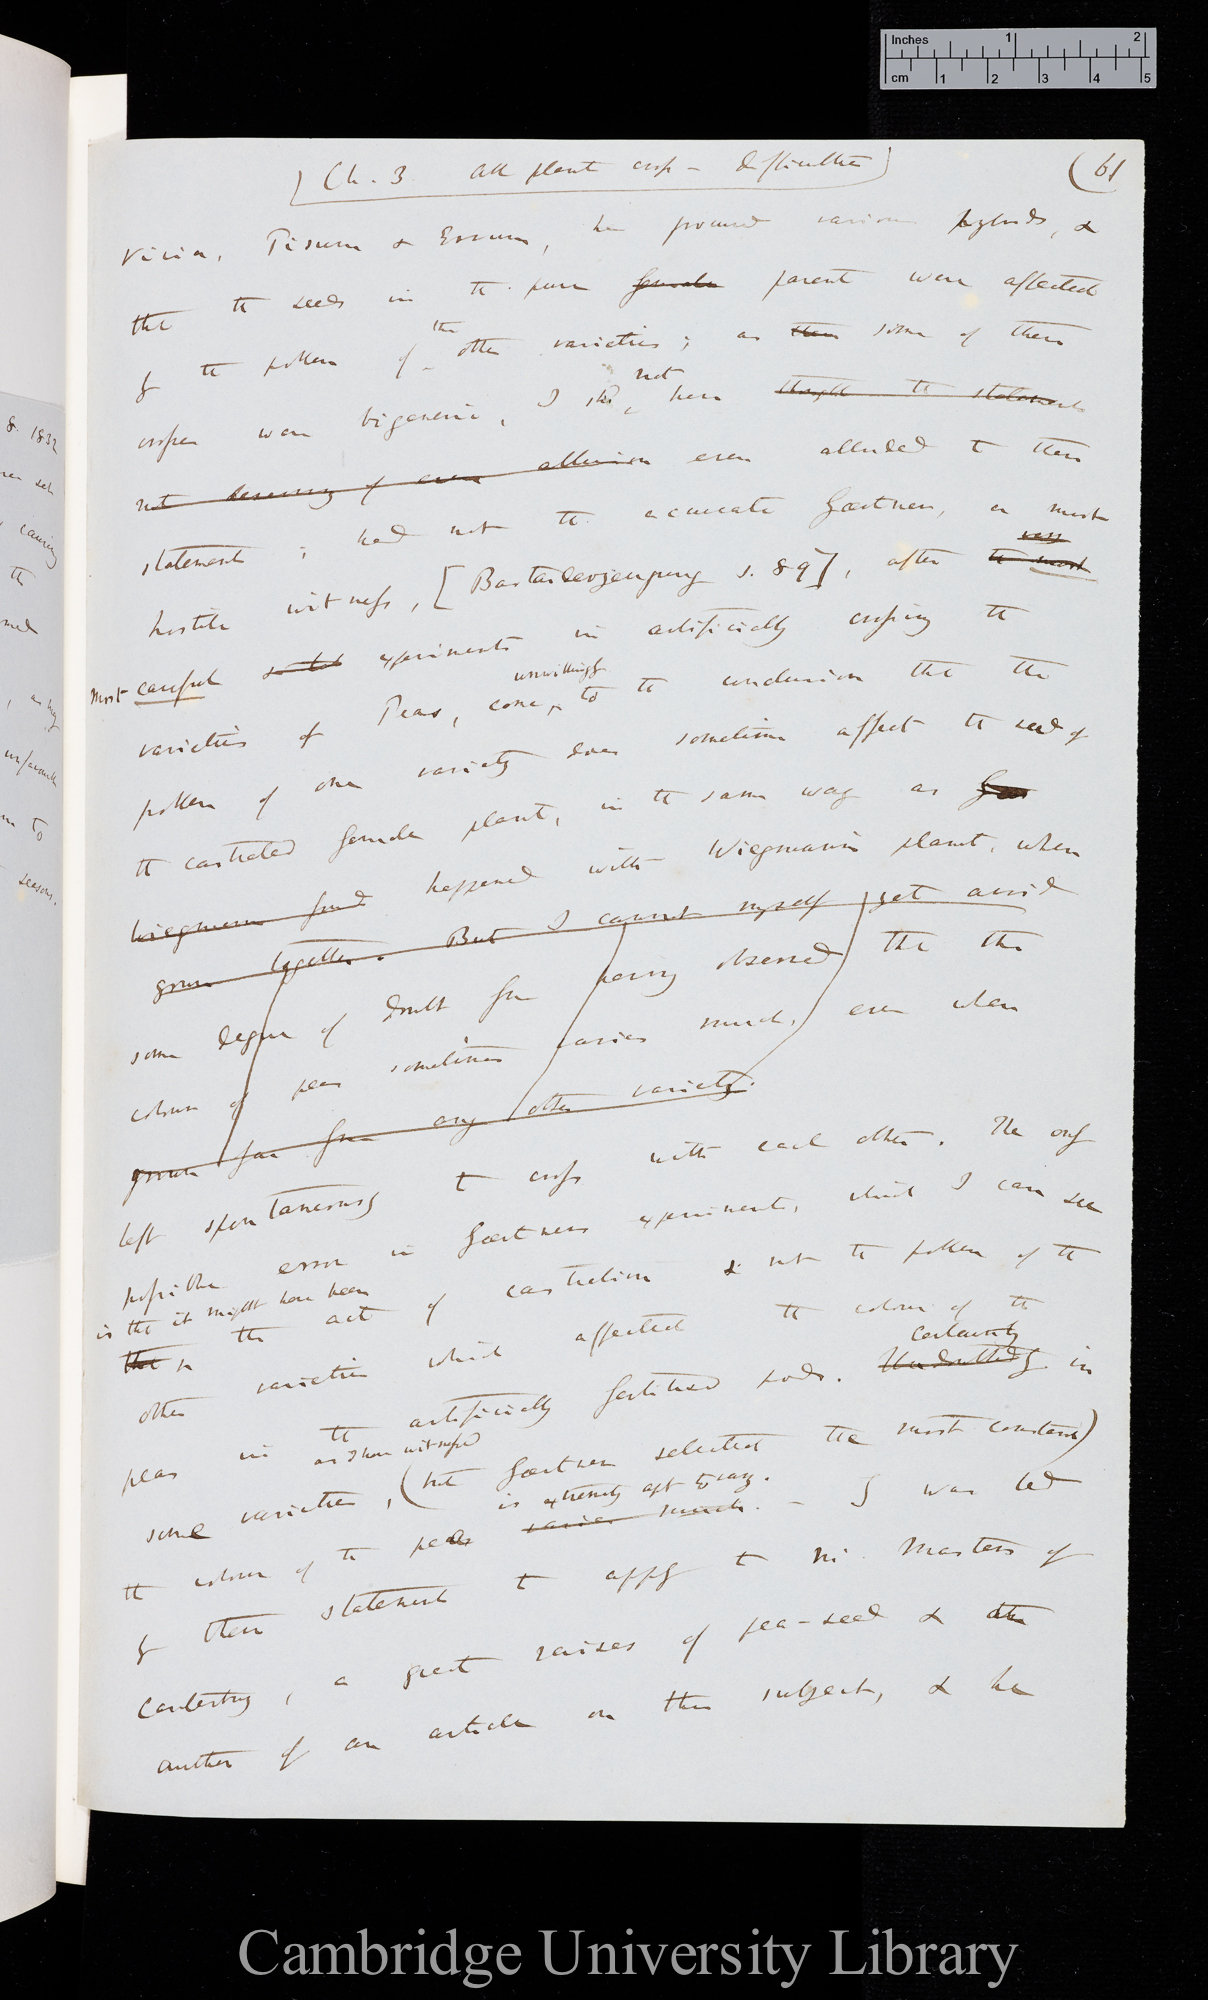 Inches 1 2
cm 1 2 3 4 5
Ch. 3 All plants cross - difficulties
(61
Vicia, Pisum & Ervum, he procured various hybrids, &
that the seeds in the pure female parent were affected
by the pollen of the other varieties; as these some of these
crosses were bigeneric, I shd not have thought the statements
not deserving of even allusion even alluded to these
statements; had not the accurate Gærtner, a most
hostile witness, [Bastarderzeugung s. 89], after the most very
most careful experiments in artificially crossing the
varieties of Peas, come, unwillingly to the conclusion that the
pollen of one variety does sometimes affect the seed of
the castrated female plant, in the same way as
Wiegmann found happened with Wiegmann's plants, when
grown together. But I cannot myself get avoid
some degree of doubt from having observed that the
colour of peas sometimes varies much, even when
grown far from any other variety.
left spontaneously to cross with each other. The only
possible error in Gærtners experiments, which I can see
is that it might have been
that is the act of castration & not the pollen of the
other varieties which affected the colour of the
peas in the artificially fertilised pods. Undoubtedly Certainly in
some varieties, as I have witnessed (but Gærtner selected the most constant)
the colour of the peas varies much is extremely apt to vary. - I was led
by these statements to apply to Mr. Masters of
Canterbury, a great raiser of pea-seed & the
author of an article on this subject, & he
8. 1832
causing
the
to
seasons.
Cambridge University Library